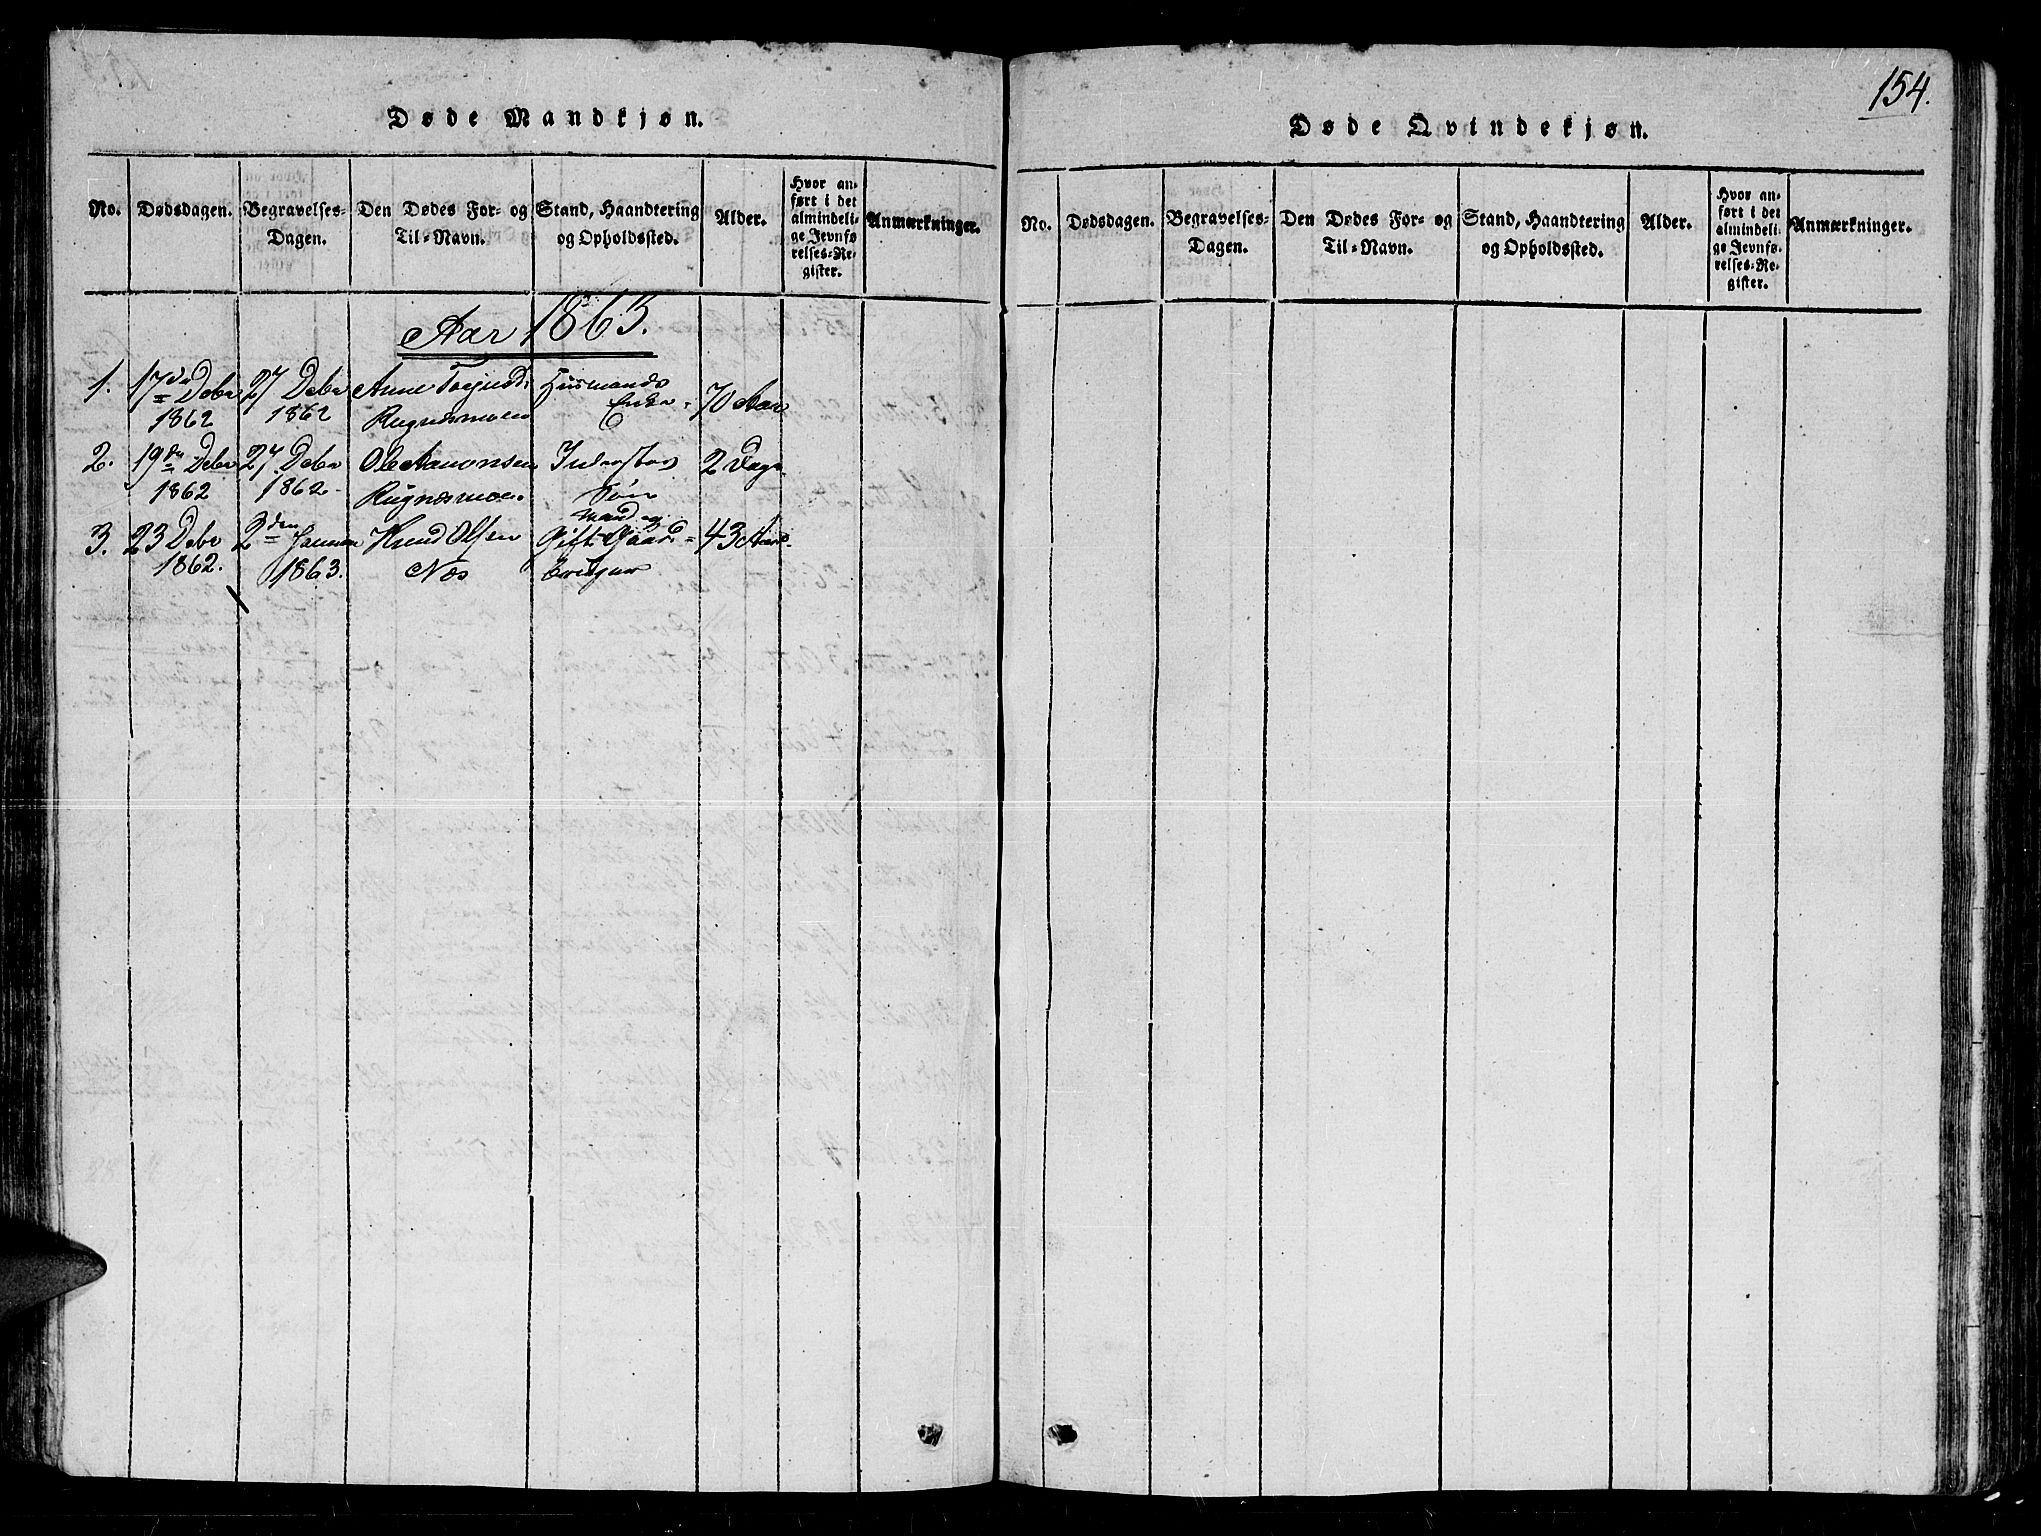 154.
Døde Mandkjøn.
No. Dødsdagen. Begravelses-Dagen. Den Dødes For- og Til-Navn. Stand, Haandtering og Opholdssted. Alder. Hvor anført i det almindelige Jevnførelses-Register. Anmærkninger.
Aar 1863.
1. 17de Debr 27 Debr Anne Husmands 70 Aar
1862 1862 Rugnesmoen Enke
2. 19de Debr 27 Debr Ole Aanonsen Inderster 2 Dage
1862 1862 Rugnesmoen Søn
Mand og
3. 23 Debr 2den Januar Knud Olsen Gift Gaard= 43 Aar
1862. 1863. Næs bruger
Døde Qvindekjøn.
No. Dødsdagen. Begravelses-Dagen. Den Dødes For- og Til-Navn. Stand, Haandtering og Opholdssted. Alder. Hvor anført i det almindelige Jevnførelses-Register. Anmærkninger.